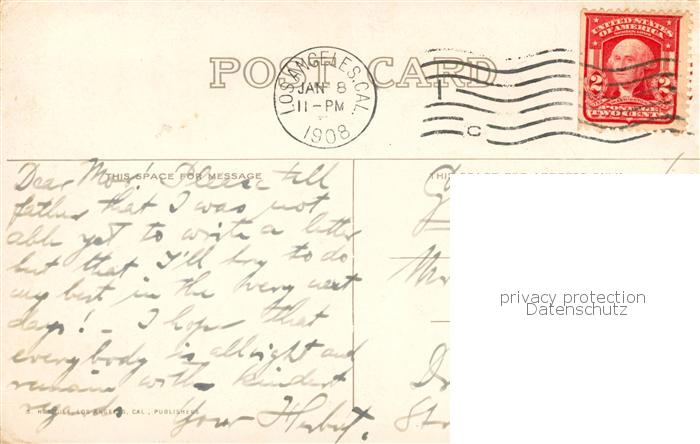 POST CARD
LOS ANGELES, CAL.
JAN 8
11-PM
1908
UNITED STATES
OF AMERICA
2 2
POSTAGE
TWO CENTS
THIS SPACE FOR MESSAGE
Dear Mom! Please tell
father that I was not
able yet to write a letter
but that I'll try to do
my best in the very next
days! - I hope that
everybody is allright and
remain with kindest
regards Your Herbert.
LOS ANGELES, CAL., PUBLISHERS
privacy protection
Datenschutz